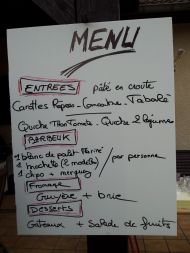 MENU
ENTREES pâté en croute
Carottes Râpées - Concombre - Taboulé
Quiche Thon Tomate - Quiche 2 légumes
BARBEUK
1 blanc de poulet Mariné
1 brochette (2 modèles) / par personne
1 chipo + merguez
Fromage
Gruyère + brie
DESSERTS
Gateaux + Salade de fruits